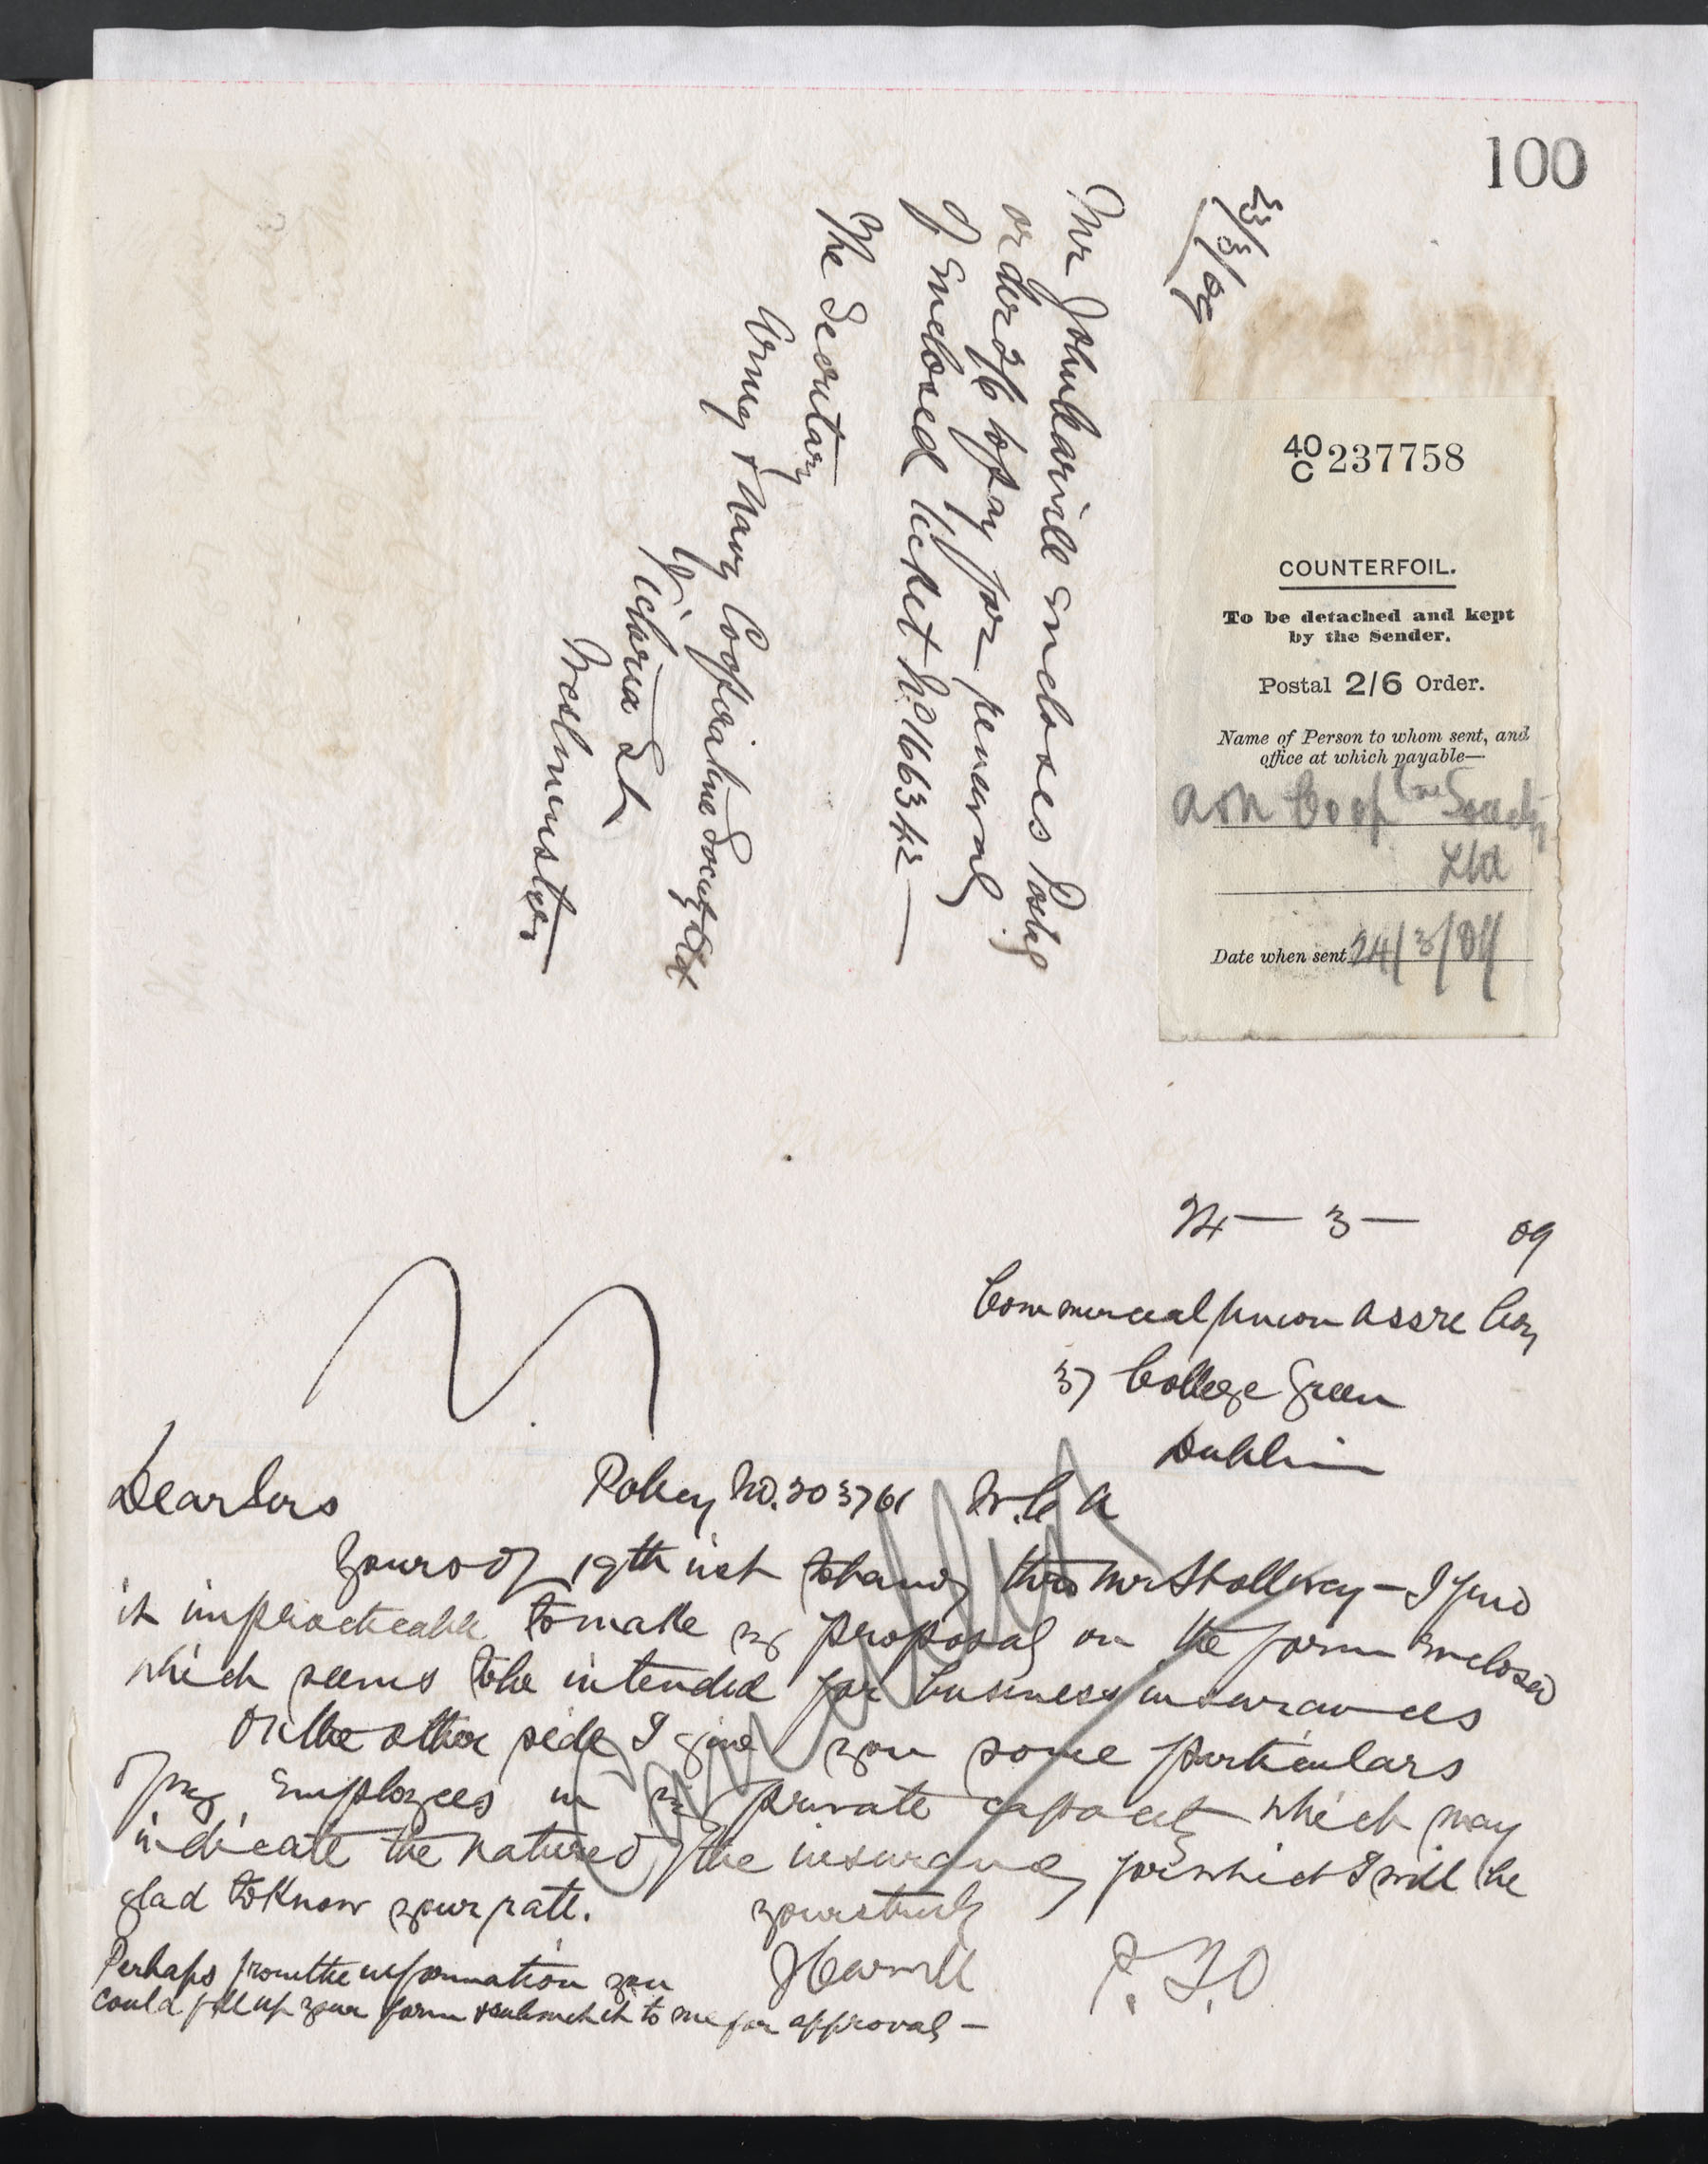 100
23/3/09
Mr John Carvill encloses Postal
order 2/6 to pay for renewal
of Enclosed ticket No 166342 —
The Secretary
Army & Navy Cooperative Society Ltd
Victoria St
Westminster
40
C 237758
COUNTERFOIL.
To be detached and kept
by the Sender.
Postal 2/6 Order.
Name of Person to whom sent, and
office at which payable—
A & N Coop tive Society
Ltd
Date when sent 24/3/09
24 — 3 — 09
Commercial Union Assce Coy
37 College Green
Dublin
Dear Sirs Policy No. 203761 W.C.A
Yours of 19th inst to hand thro Mr Shollney — I find
it impracticable to make my proposal on the form enclosed
which seems to be intended for business insurances
On the other side I give you some particulars
of my Employees in my private capacity which may
indicate the nature of the insurance for which I will be
glad to know your rate.
Yours truly
JCarvill
P.T.O
Perhaps from the information you
could fill up your form & submit it to me for approval —